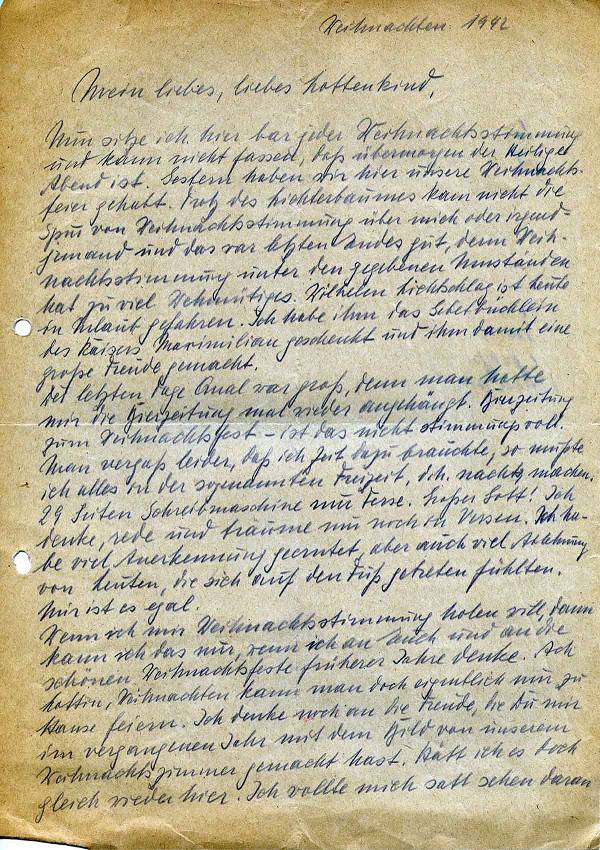 Weihnachten 1942
Mein liebes, liebes Lottenkind,
Nun sitze ich hier bar jeder Weihnachtsstimmung
und kann nicht fassen, daß übermorgen der Heilige
Abend ist. Gestern haben wir hier unsere Weihnachts-
feier gehabt. Trotz des Lichterbaumes kam nicht die
Spur von Weihnachtsstimmung über mich oder irgend-
jemand und das war letzten Endes gut, denn Weih-
nachtsstimmung unter den gegebenen Umständen
hat zu viel Wehmütiges. Wilhelm Lichtschlag ist heute
in Urlaub gefahren. Ich habe ihm das Gebetbüchlein
des Kaisers Maximilian geschenkt und ihm damit eine
große Freude gemacht.
Der letzten Tage Qual war groß, denn man hatte
mir die Bierzeitung mal wieder angehängt. Bierzeitung
zum Weihnachtsfest – ist das nicht stimmungsvoll.
Man vergaß leider, daß ich Zeit dazu brauchte, so mußte
ich alles in der sogenannten Freizeit, d.h. nachts machen.
29 Seiten Schreibmaschine nur Verse. Großer Gott! Ich
denke, rede und träume nur noch in Versen. Ich ha-
be viel Anerkennung geerntet, aber auch viel Ablehnung
von Leuten, die sich auf den Fuß getreten fühlten.
Mir ist es egal.
Wenn ich mir Weihnachtsstimmung holen will, dann
kann ich das nur, wenn ich an Euch und an die
schönen Weihnachtsfeste früherer Jahre denke. Ach
Lottin, Weihnachten kann man doch eigentlich nur zu
Hause feiern. Ich denke noch an die Freude, die Du mir
im vergangenen Jahr mit dem Bild von unserem
Weihnachtszimmer gemacht hast. Hätt ich es doch
gleich wieder hier. Ich wollte mich satt sehen daran